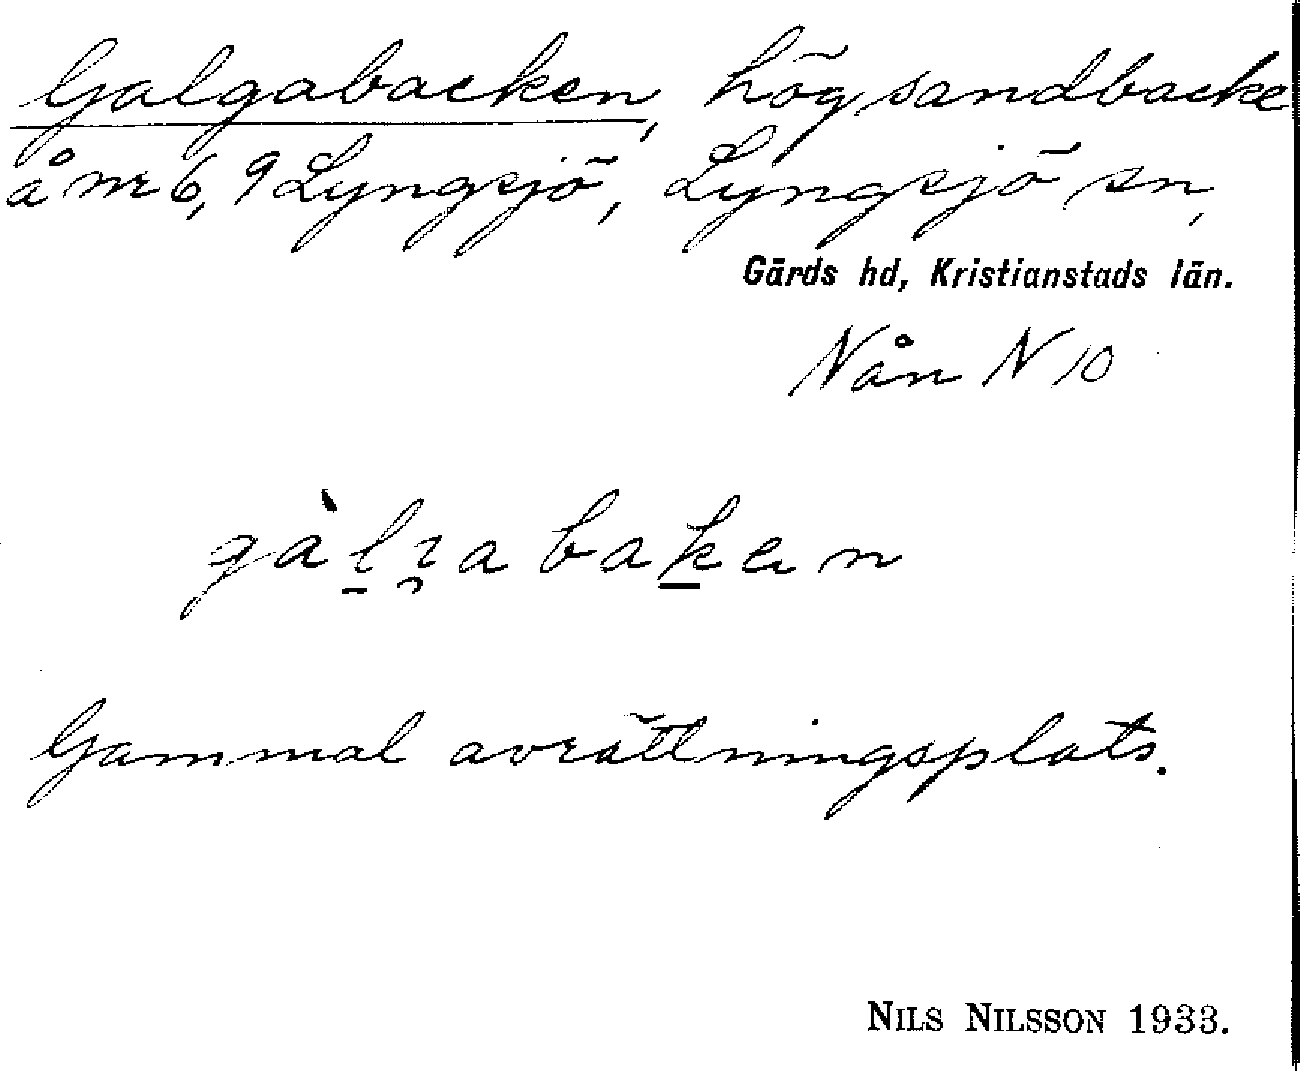 Galgabacken, hög sandbacke
å nr 6, 9 Lyngsjö, Lyngsjö sn,
Gärds hd, Kristianstads län.
Nån N 10
Gammal avrättningsplats.
NILS NILSSON 1933.